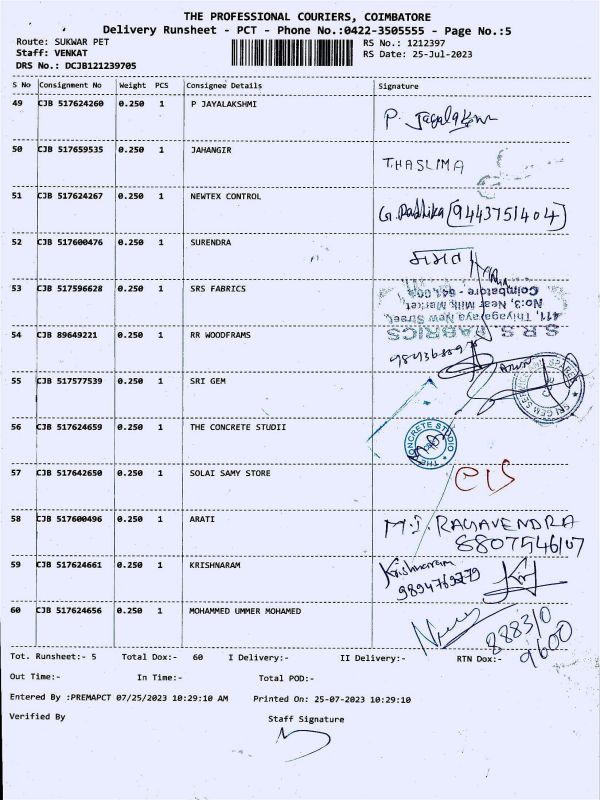 THE PROFESSIONAL COURIERS, COIMBATORE
Delivery Runsheet - PCT - Phone No.:0422-3505555 - Page No.:5
Route: SUKWAR PET RS No.: 1212397
Staff: VENKAT RS Date: 25-Jul-2023
DRS No.: DCJB121239705
S No Consignment No Weight PCS Consignee Details Signature
49 CJB 517624260 0.250 1 P JAYALAKSHMI
50 CJB 517659535 0.250 1 JAHANGIR THASLIMA
51 CJB 517624267 0.250 1 NEWTEX CONTROL (9443751404)
52 CJB 517600476 0.250 1 SURENDRA
53 CJB 517596628 0.250 1 SRS FABRICS
S.R.S. FABRICS
411, Thiyagaraya New Street,
No:3, Near Milk Market
Coimbatore - 641 001
54 CJB 89649221 0.250 1 RR WOODFRAMS
55 CJB 517577539 0.250 1 SRI GEM
56 CJB 517624659 0.250 1 THE CONCRETE STUDII
THE CONCRETE STUDIO
57 CJB 517642650 0.250 1 SOLAI SAMY STORE
58 CJB 517600496 0.250 1 ARATI M.J. RAGAVENDRA
59 CJB 517624661 0.250 1 KRISHNARAM Krishnaram
9894769279
60 CJB 517624656 0.250 1 MOHAMMED UMMER MOHAMED
88831 0
9600
Tot. Runsheet:- 5 Total Dox:- 60 I Delivery:- II Delivery:- RTN Dox:-
Out Time:- In Time:- Total POD:-
Entered By :PREMAPCT 07/25/2023 10:29:10 AM Printed On: 25-07-2023 10:29:10
Verified By Staff Signature